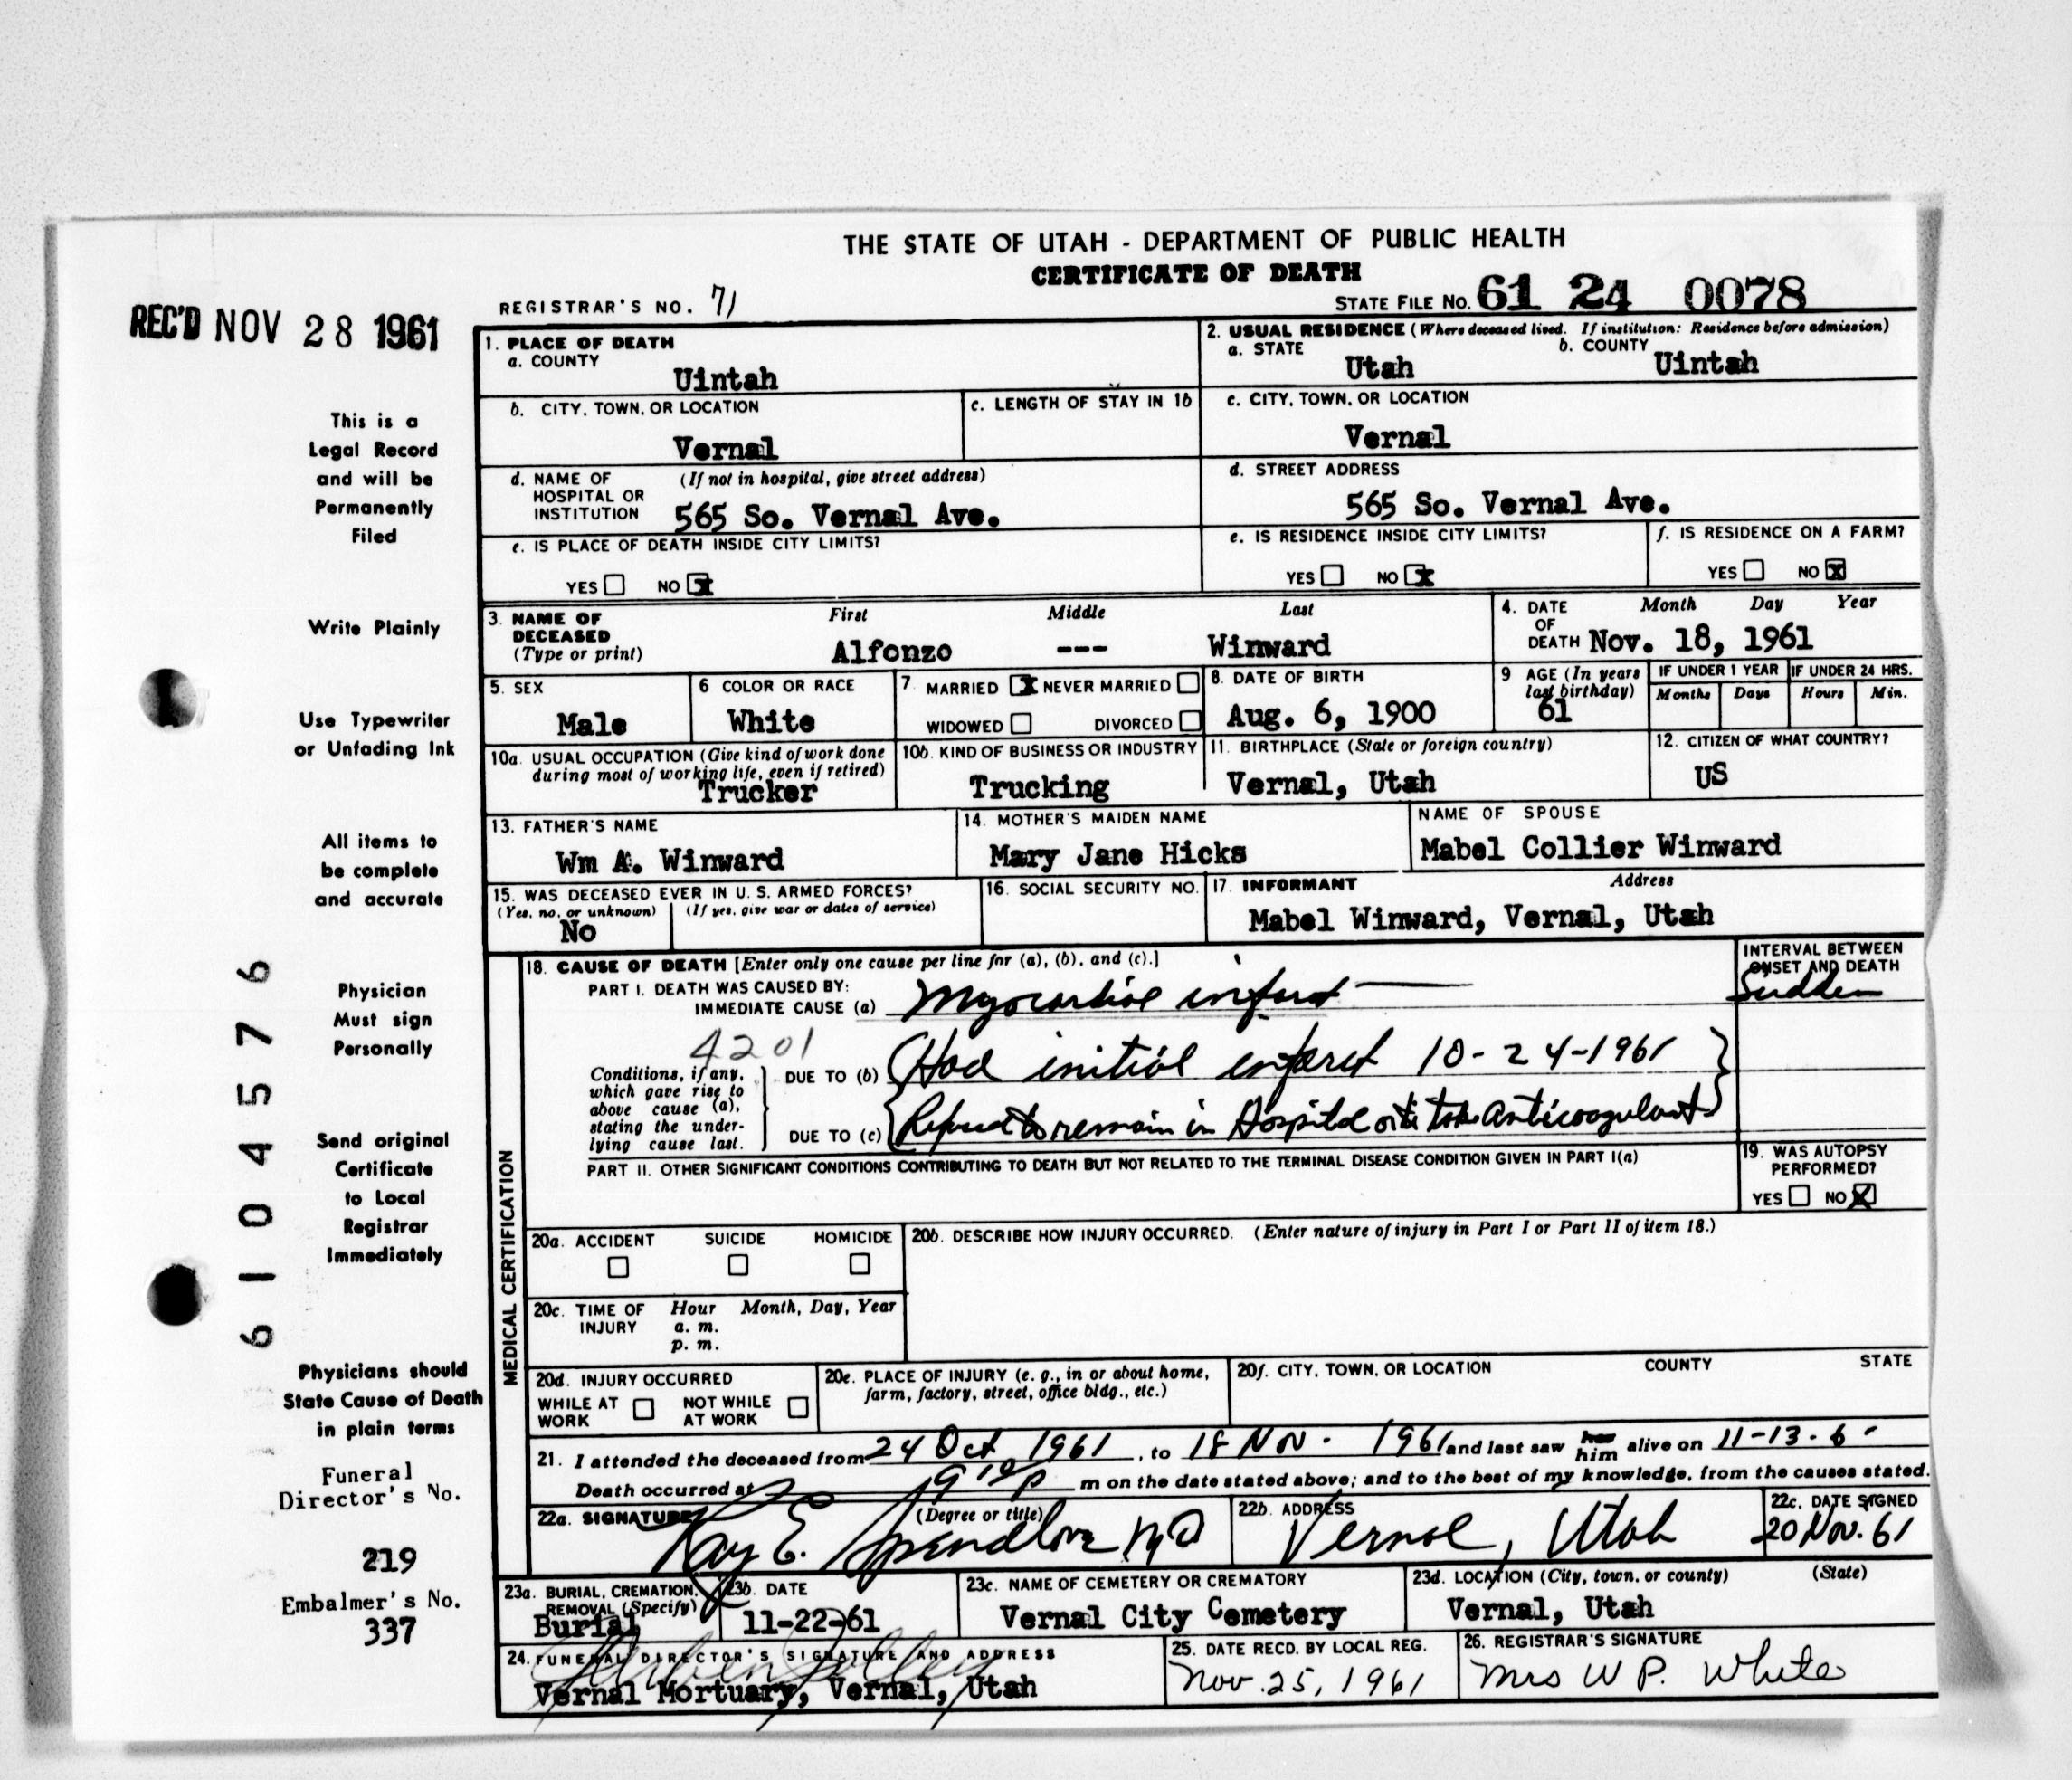 THE STATE OF UTAH - DEPARTMENT OF PUBLIC HEALTH
CERTIFICATE OF DEATH
REGISTRAR'S NO. 71
STATE FILE NO. 61 24 0078
REC'D NOV 28 1961
This is a
Legal Record
and will be
Permanently
Filed
Write Plainly
Use Typewriter
or Unfading Ink
All items to
be complete
and accurate
Physician
Must sign
Personally
Send original
Certificate
to Local
Registrar
Immediately
Physicians should
State Cause of Death
in plain terms
Funeral
Director's No.
219
Embalmer's No.
337
6104576
1. PLACE OF DEATH
a. COUNTY
Uintah
2. USUAL RESIDENCE (Where deceased lived. If institution: Residence before admission)
a. STATE b. COUNTY
Utah Uintah
b. CITY, TOWN, OR LOCATION
Vernal
c. LENGTH OF STAY IN 1b
c. CITY, TOWN, OR LOCATION
Vernal
d. NAME OF (If not in hospital, give street address)
HOSPITAL OR
INSTITUTION 565 So. Vernal Ave.
d. STREET ADDRESS
565 So. Vernal Ave.
e. IS PLACE OF DEATH INSIDE CITY LIMITS?
YES NO x
e. IS RESIDENCE INSIDE CITY LIMITS?
YES NO x
f. IS RESIDENCE ON A FARM?
YES NO x
3. NAME OF First Middle Last
DECEASED
(Type or print) Alfonzo --- Winward
4. DATE Month Day Year
OF
DEATH Nov. 18, 1961
5. SEX
Male
6 COLOR OR RACE
White
7 MARRIED x NEVER MARRIED
WIDOWED DIVORCED
8. DATE OF BIRTH
Aug. 6, 1900
9 AGE (In years
last birthday)
61
IF UNDER 1 YEAR IF UNDER 24 HRS.
Months Days Hours Min.
10a. USUAL OCCUPATION (Give kind of work done
during most of working life, even if retired)
Trucker
10b. KIND OF BUSINESS OR INDUSTRY
Trucking
11. BIRTHPLACE (State or foreign country)
Vernal, Utah
12. CITIZEN OF WHAT COUNTRY?
US
13. FATHER'S NAME
Wm A. Winward
14. MOTHER'S MAIDEN NAME
Mary Jane Hicks
NAME OF SPOUSE
Mabel Collier Winward
15. WAS DECEASED EVER IN U. S. ARMED FORCES?
(Yes, no, or unknown) (If yes, give war or dates of service)
No
16. SOCIAL SECURITY NO.
17. INFORMANT Address
Mabel Winward, Vernal, Utah
MEDICAL CERTIFICATION
18. CAUSE OF DEATH [Enter only one cause per line for (a), (b), and (c).]
PART I. DEATH WAS CAUSED BY:
IMMEDIATE CAUSE (a) Myocardial infarct
INTERVAL BETWEEN
ONSET AND DEATH
Sudden
4201
Conditions, if any,
which gave rise to
above cause (a),
stating the under-
lying cause last.
DUE TO (b) (Had initial infarct 10-24-1961
DUE TO (c) Refused to remain in Hospital or to take anticoagulant)
PART II. OTHER SIGNIFICANT CONDITIONS CONTRIBUTING TO DEATH BUT NOT RELATED TO THE TERMINAL DISEASE CONDITION GIVEN IN PART I(a)
19. WAS AUTOPSY
PERFORMED?
YES NO X
20a. ACCIDENT SUICIDE HOMICIDE
20b. DESCRIBE HOW INJURY OCCURRED. (Enter nature of injury in Part I or Part II of item 18.)
20c. TIME OF Hour Month, Day, Year
INJURY a. m.
p. m.
20d. INJURY OCCURRED
WHILE AT NOT WHILE
WORK AT WORK
20e. PLACE OF INJURY (e. g., in or about home,
farm, factory, street, office bldg., etc.)
20f. CITY, TOWN, OR LOCATION COUNTY STATE
21. I attended the deceased from 24 Oct 1961, to 18 Nov. 1961 and last saw her him alive on 11-13-6
Death occurred at 9 10 p m on the date stated above; and to the best of my knowledge, from the causes stated.
22a. SIGNATURE (Degree or title)
Ray E. Spendlove MD
22b. ADDRESS
Vernal, Utah
22c. DATE SIGNED
20 Nov. 61
23a. BURIAL, CREMATION,
REMOVAL (Specify)
Burial
23b. DATE
11-22-61
23c. NAME OF CEMETERY OR CREMATORY
Vernal City Cemetery
23d. LOCATION (City, town, or county) (State)
Vernal, Utah
24. FUNERAL DIRECTOR'S SIGNATURE AND ADDRESS
Vernal Mortuary, Vernal, Utah
25. DATE RECD. BY LOCAL REG.
Nov. 25, 1961
26. REGISTRAR'S SIGNATURE
Mrs W P. White